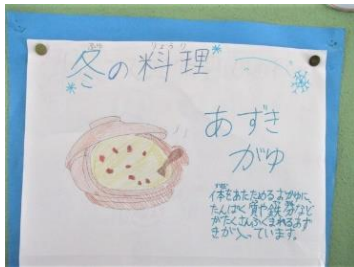 冬の料理
ふゆ りょうり
あずき
がゆ
体をあたためるおかゆに、
たんぱく質や鉄分など
がたくさんふくまれるあず
きが入っています。